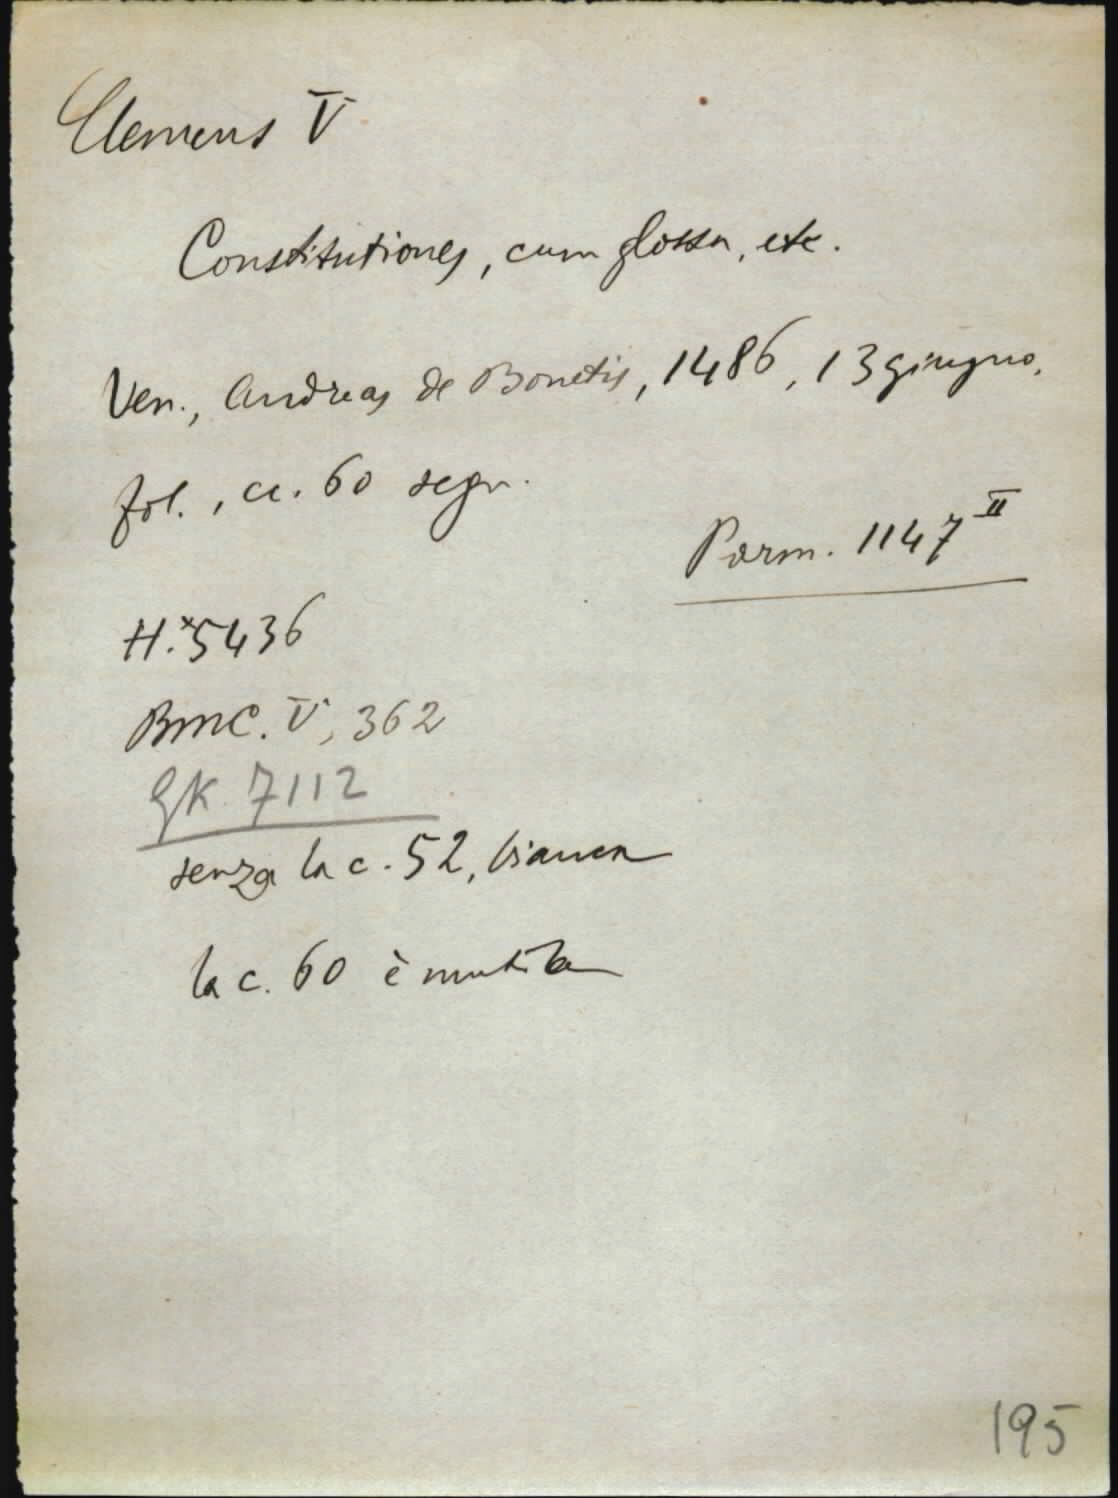 Clemens V
Constitutiones, cum glossa, etc.
Ven., Andreas de Bonetis, 1486, 13 giugno,
fol., cc. 60 segn.
Parm. 1147 II
H.*5436
BMC. V, 362
GK 7112
senza la c. 52, bianca
la c. 60 è mutila
195